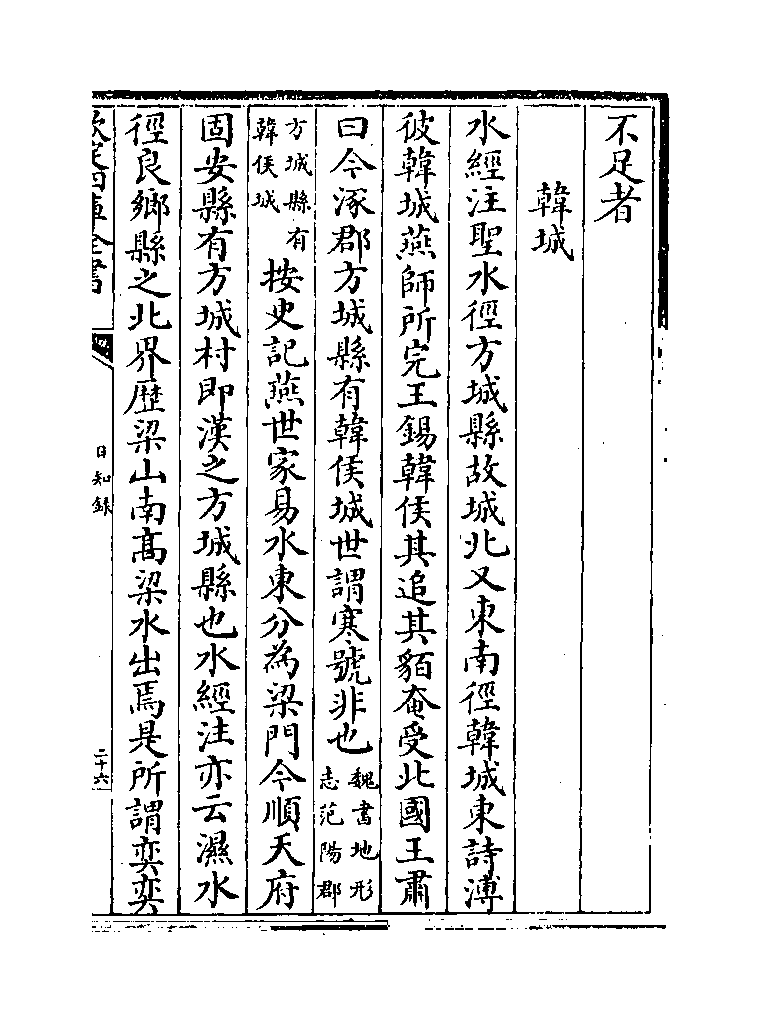 不足者
韓城
水經注聖水徑方城縣故城北又東南徑韓城東詩溥
彼韓城燕師所完王錫韓侯其追其貊奄受北國王肅
曰今涿郡方城縣有韓侯城世謂寒號非也魏書地形志范陽郡
方城縣有韓侯城按史記燕世家易水東分為梁門今順天府
固安縣有方城村即漢之方城縣也水經注亦云濕水
徑良鄉縣之北界歷梁山南高梁水出焉是所謂奕奕
欽定四庫全書
日知錄
二十六